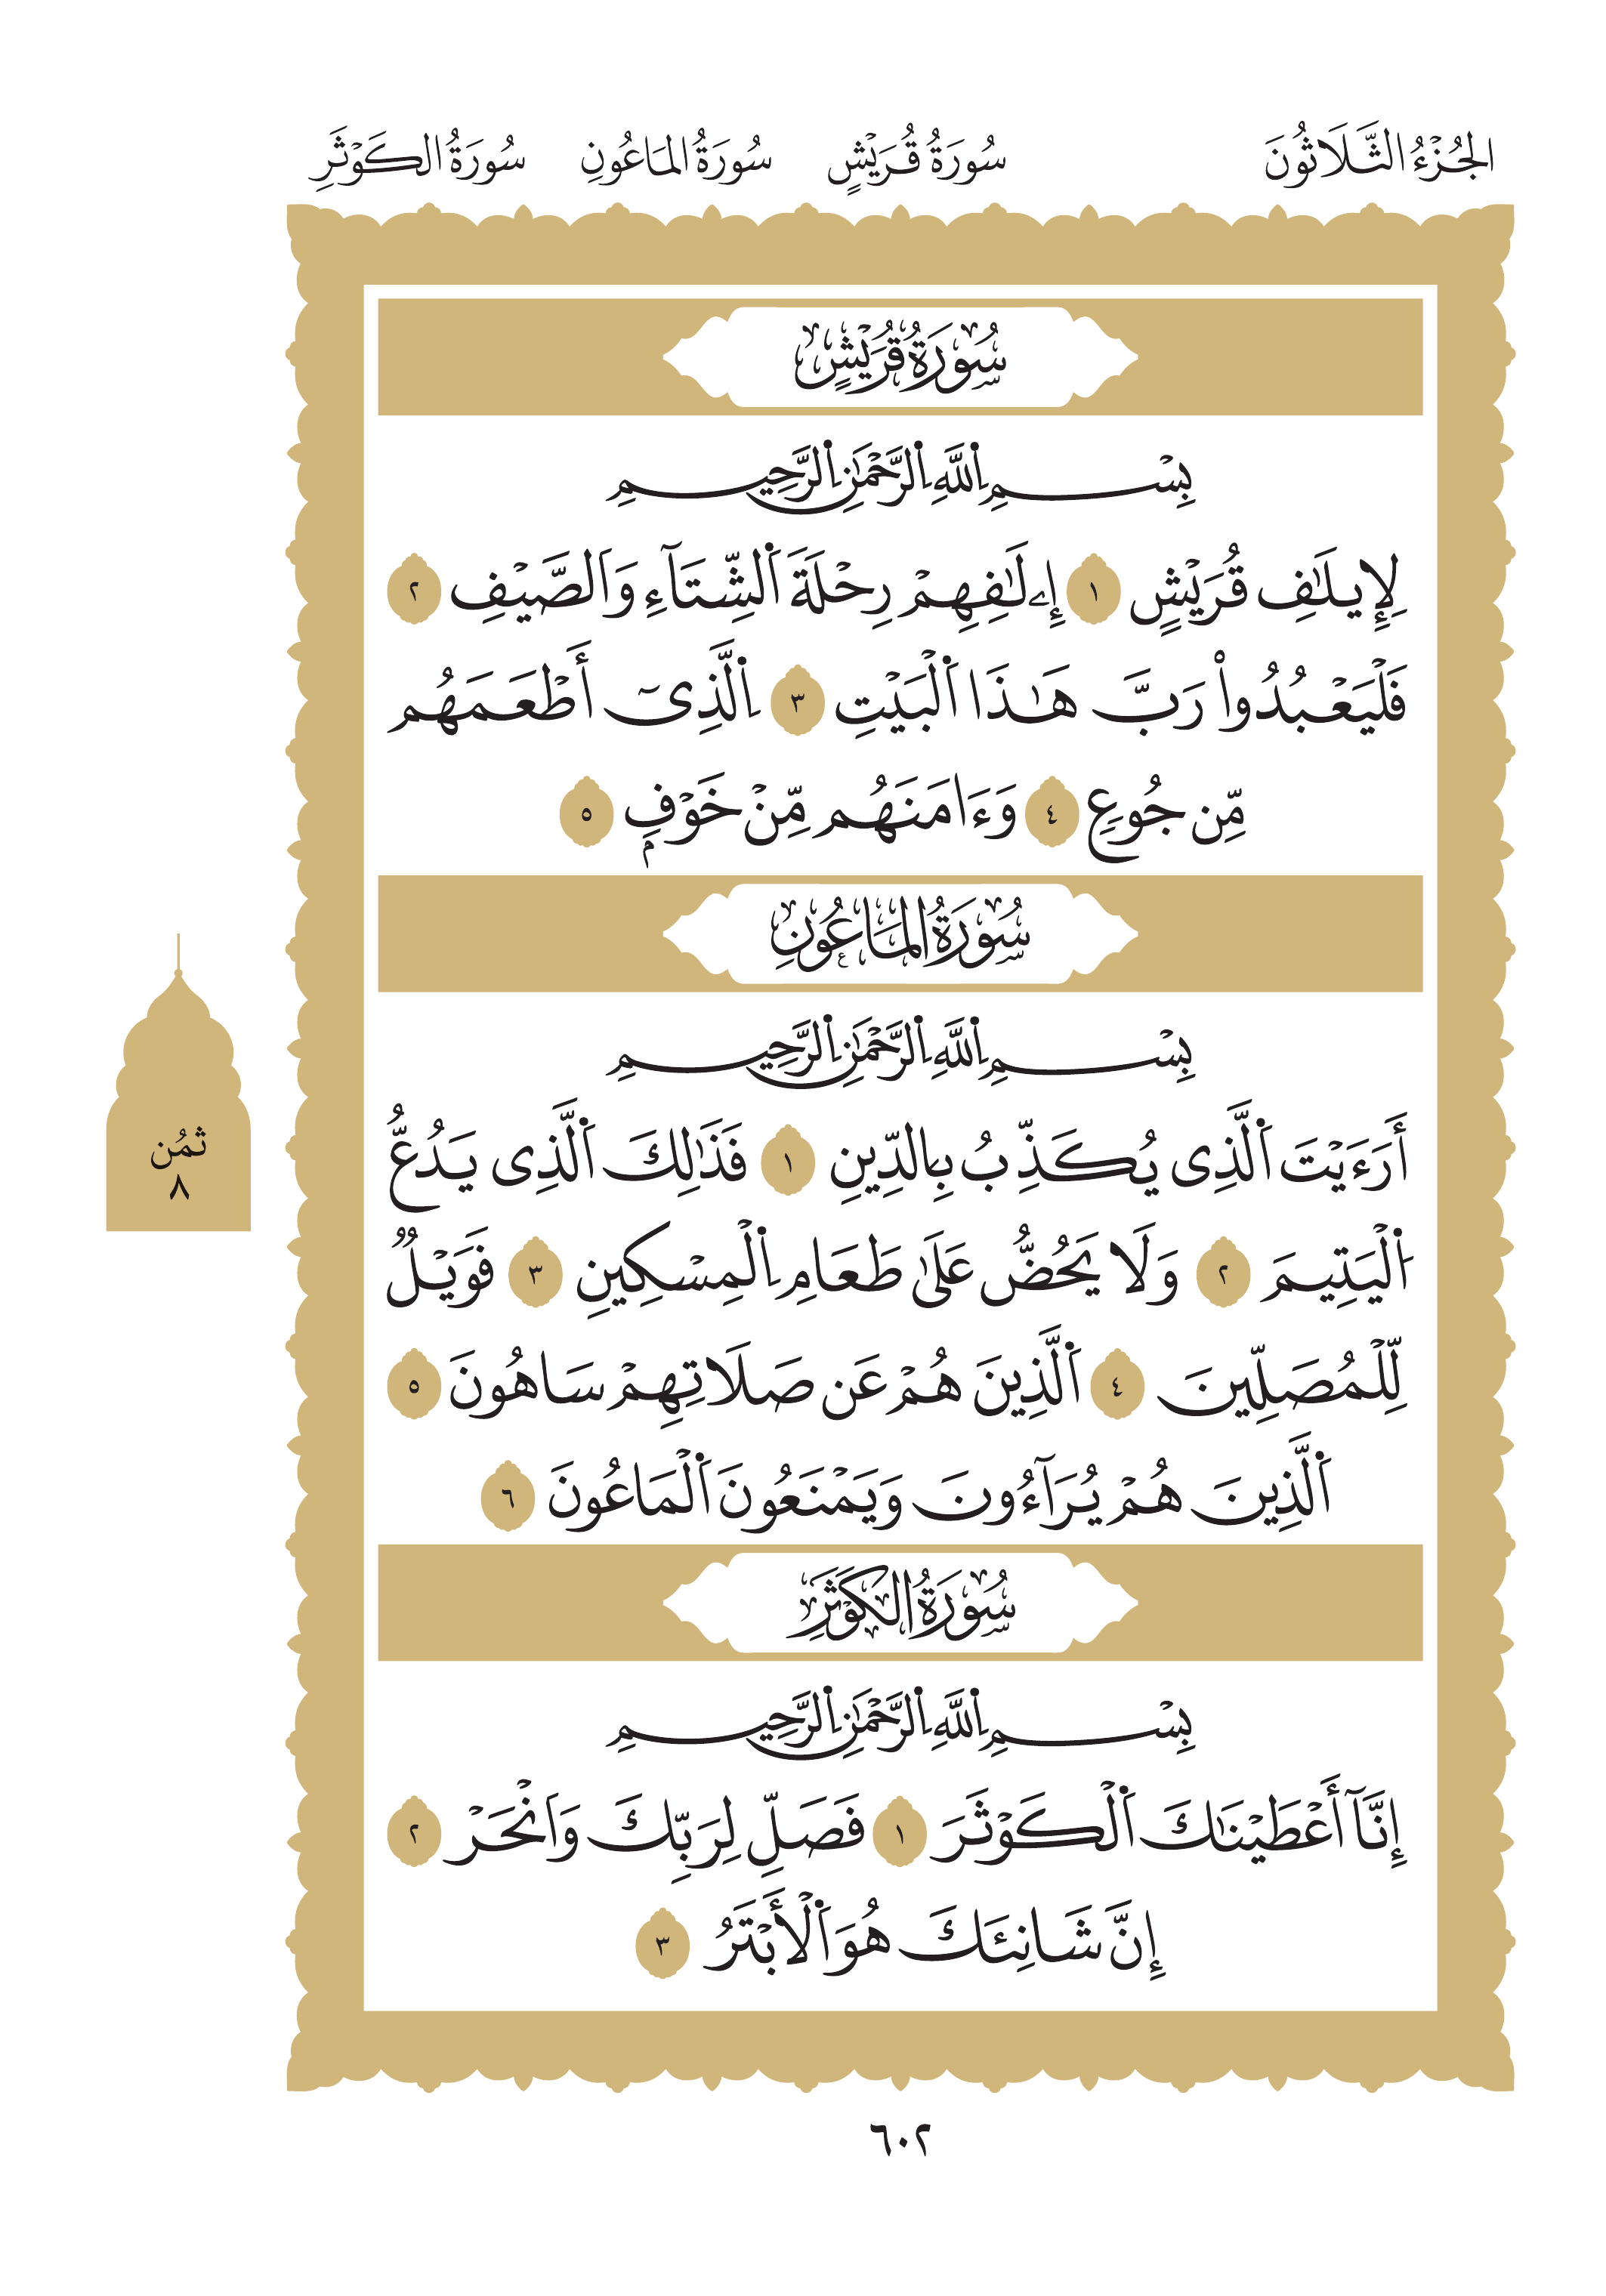 الجُزْءُ الثَّلَاثُونَ سُورَةُ قُرَيْشٍ سُورَةُ المَاعُونِ سُورَةُ الكَوْثَرِ
سُورَةُ قُرَيْشٍ
بِسْمِ اِ۬للَّهِ اِ۬لرَّحْمَٰنِ اِ۬لرَّحِيمِ
لِإِيلَٰفِ قُرَيْشٍ ١ إِۦلَٰفِهِمْ رِحْلَةَ اَ۬لشِّتَآءِ وَالصَّيْفِ ٢
فَلْيَعْبُدُواْ رَبَّ هَٰذَا اَ۬لْبَيْتِ ٣ اِ۬لَّذِىٓ أَطْعَمَهُم
مِّن جُوعٍ ٤ وَءَامَنَهُم مِّنْ خَوْفٍۢ ٥
سُورَةُ المَاعُونِ
بِسْمِ اِ۬للَّهِ اِ۬لرَّحْمَٰنِ اِ۬لرَّحِيمِ
أَرَءَيْتَ اَ۬لَّذِى يُكَذِّبُ بِالدِّينِ ١ فَذَٰلِكَ اَ۬لَّذِى يَدُعُّ
اُ۬لْيَتِيمَ ٢ وَلَا يَحُضُّ عَلَىٰ طَعَامِ اِ۬لْمِسْكِينِ ٣ فَوَيْلٌ
لِّلْمُصَلِّينَ ٤ اَ۬لَّذِينَ هُمْ عَن صَلَاتِهِمْ سَاهُونَ ٥
اَ۬لَّذِينَ هُمْ يُرَآءُونَ وَيَمْنَعُونَ اَ۬لْمَاعُونَ ٦
سُورَةُ الكَوْثَرِ
بِسْمِ اِ۬للَّهِ اِ۬لرَّحْمَٰنِ اِ۬لرَّحِيمِ
إِنَّآ أَعْطَيْنَٰكَ اَ۬لْكَوْثَرَ ١ فَصَلِّ لِرَبِّكَ وَانْحَرْ ٢
إِنَّ شَانِئَكَ هُوَ اَ۬لْأَبْتَرُ ٣
ثمُن
٨
٦٠٢